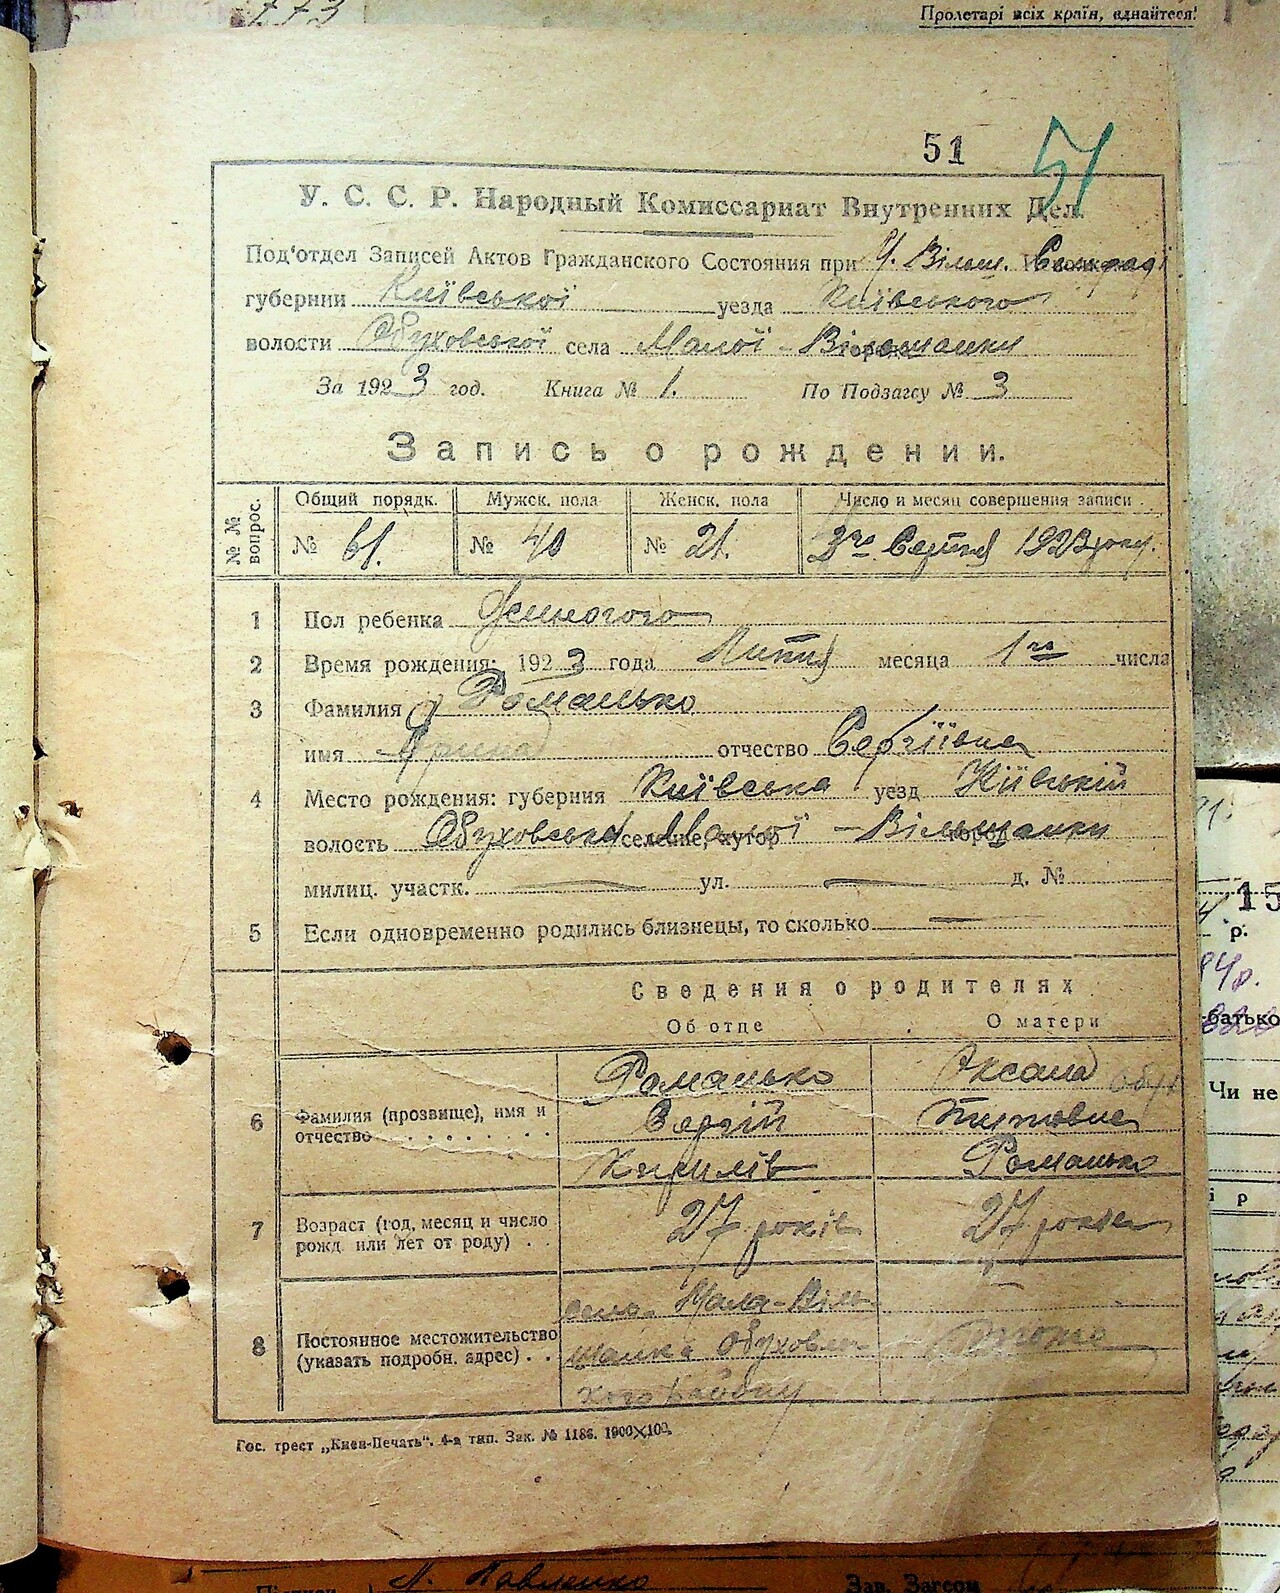 773
Пролетарі всіх країн, єднайтеся!
51 51
У. С. С. Р. Народный Комиссариат Внутренних Дел.
Под'отдел Записей Актов Гражданского Состояния при М. Вільш.
губернии Київської уезда Київського
волости Обуховської села Малої-Вільшанки
За 1923 год. Книга № 1. По Подзагсу № 3
Запись о рождении.
№ № вопрос. Общий порядк. Мужск. пола Женск. пола Число и месяц совершения записи
№ 61. № 40 № 21. 3го Серпня 1923 року.
1 Пол ребенка Женочого
2 Время рождения: 1923 года Липня месяца 1го числа
3 Фамилия Романько
имя Ярина отчество Сергіївна
4 Место рождения: губерния Київська уезд Київський
волость Обуховська селение, хутор Малої-Вільшанки
милиц. участк. — ул. — д. №
5 Если одновременно родились близнецы, то сколько —
Сведения о родителях
Об отце О матери
6 Фамилия (прозвище), имя и отчество
Романько Оксана
Сергій Титовна
Кирилів Романько
7 Возраст (год, месяц и число рожд. или лет от роду) 27 років 27 років
8 Постоянное местожительство (указать подробн. адрес)
село Мала-Віль-
шанка Обуховсь-
кого Району
Гос. трест „Киев-Печать". 4-я тип. Зак. № 1186. 1900×100.
15
р.
батько
Чи не
і р
Підписи Л. Павленко Зав. Загсом